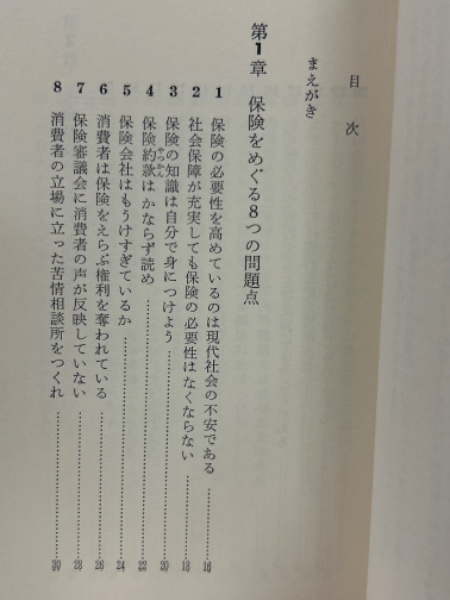 目次
まえがき
第1章 保険をめぐる8つの問題点
1 保険の必要性を高めているのは現代社会の不安である……16
2 社会保障が充実しても保険の必要性はなくならない……18
3 保険の知識は自分で身につけよう……20
4 保険約款はかならず読め……22
やつかん
5 保険会社はもうけすぎているか……24
6 消費者は保険をえらぶ権利を奪われている……26
7 保険審議会に消費者の声が反映していない……28
8 消費者の立場に立った苦情相談所をつくれ……30